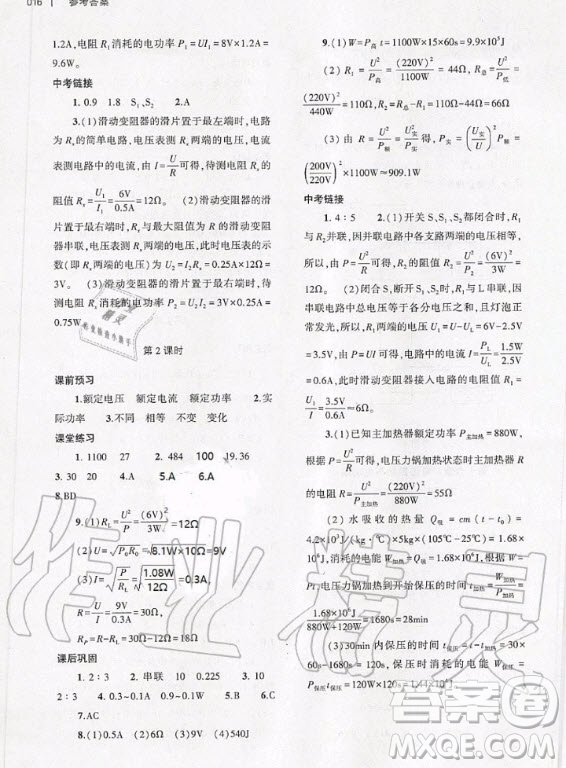 016 | 参考答案
1.2A,电阻 R₁ 消耗的电功率 P₁ = UI₁ = 8V×1.2A =
9.6W。
中考链接
1. 0.9 1.8 S₁、S₂ 2. A
3. (1)滑动变阻器的滑片置于最左端时,电路
为 Rₓ 的简单电路,电压表测 Rₓ 两端的电压,电流
表测电路中的电流,由 I = U/R 可得,待测电阻 Rₓ 的
阻值 Rₓ = U₁/I₁ = 6V/0.5A = 12Ω。 (2)滑动变阻器的滑
片置于最右端时,Rₓ 与最大阻值的滑动变阻
器串联,电压表测 Rₓ 两端的电压,电压表的示
数(即 Rₓ 两端的电压)为 U₂ = I₂Rₓ = 0.25A×12Ω =
3V。 (3)滑动变阻器的滑片置于最右端时,待测
电阻 Rₓ 消耗的电功率 P₂ = U₂I₂ = 3V×0.25A =
0.75W。
第 2 课时
课前预习
1. 额定电压 额定电流 额定功率 2. 实
际功率 3. 不同 相等 不变 变化
课堂练习
1. 1100 27 2. 484 100 19.36
3. 30 20 4. A 5.A 6.A
8. BD
9. (1)R_L = U²/P = (6V)²/3W =12Ω
(2)U = √(P₀R₀) = √(8.1W×10Ω) =9V
(3)I = √(P/R_L) = √(1.08W/12Ω) =0.3A,
R = U/I = 9V/0.3A = 30Ω,
R_P = R − R_L = 30Ω − 12Ω = 18Ω
课后巩固
1. 2∶3 2. 串联 10 0.225 3. 3∶2
2∶3 4. 0.3~0.1A 0.9~0.1W 5. C 6. A
7. AC
8. (1)0.5A (2)6Ω (3)9V (4)540J
9. (1)W = P高 t = 1100W×15×60s = 9.9×10⁵J
(2) R₁ = U²/P高 = (220V)²/1100W = 44Ω, R总 = U²/P低 =
(220V)²/440W = 110Ω, R₂ = R总 − R₁ = 110Ω−44Ω = 66Ω
(3) 由 P = U²/R 可得, P实 = (U实/U)² P额 =
(200V/220V)²×1100W≈909.1W
中考链接
1. 4∶5 2. (1)开关 S、S₁、S₂ 都闭合时,R₁
与 R₂ 并联,因并联电路中各支路两端的电压相等,
所以,由 P = U²/R 可得,R₂ 的阻值 R₂ = U²/P₂ = (6V)²/3W =
12Ω。 (2)闭合 S、断开 S₁、S₂ 时,R₁ 与 L 串联,因
串联电路中总电压等于各分电压之和,且灯泡正
常发光,所以,R₁ 两端的电压 U₁ = U−U_L = 6V−2.5V =
3.5V,由 P = UI 可得,电路中的电流 I = I_L = P_L/U_L = 1.5W/2.5V =
0.6A,此时滑动变阻器接入电路的电阻值 R₁ =
U₁/I = 3.5V/0.6A ≈ 6Ω。
3. (1)已知主加热器额定功率 P主加热 = 880W,
根据公式 R = U²/P,电压力锅加热状态时主加热器电
阻 R = U²/P主加热 = (220V)²/880W = 55Ω
(2) 水吸收的热量 Q吸 = cm(t − t₀) =
4.2×10³J/(kg·℃)×5kg×(105℃−25℃) = 1.68×
10⁶J,消耗的电能 W =
Q吸 = 1.68×10⁶J,
加热开始到开始保压的时间 t加热 =
1.68×10⁶J/(880W+120W) = 1680s = 28min
(3)30min 内保压的时间 t保压 = t − t加热 = 30×
60s−1680s = 120s,保压消耗的电能 W保压 =
P保压 t保压 = 120W×120s = 1.44×10⁴J
作业精灵
答案圈
MXQE.COM